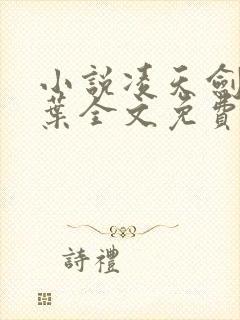 小說凌天劍
葉全文免費
詩禮